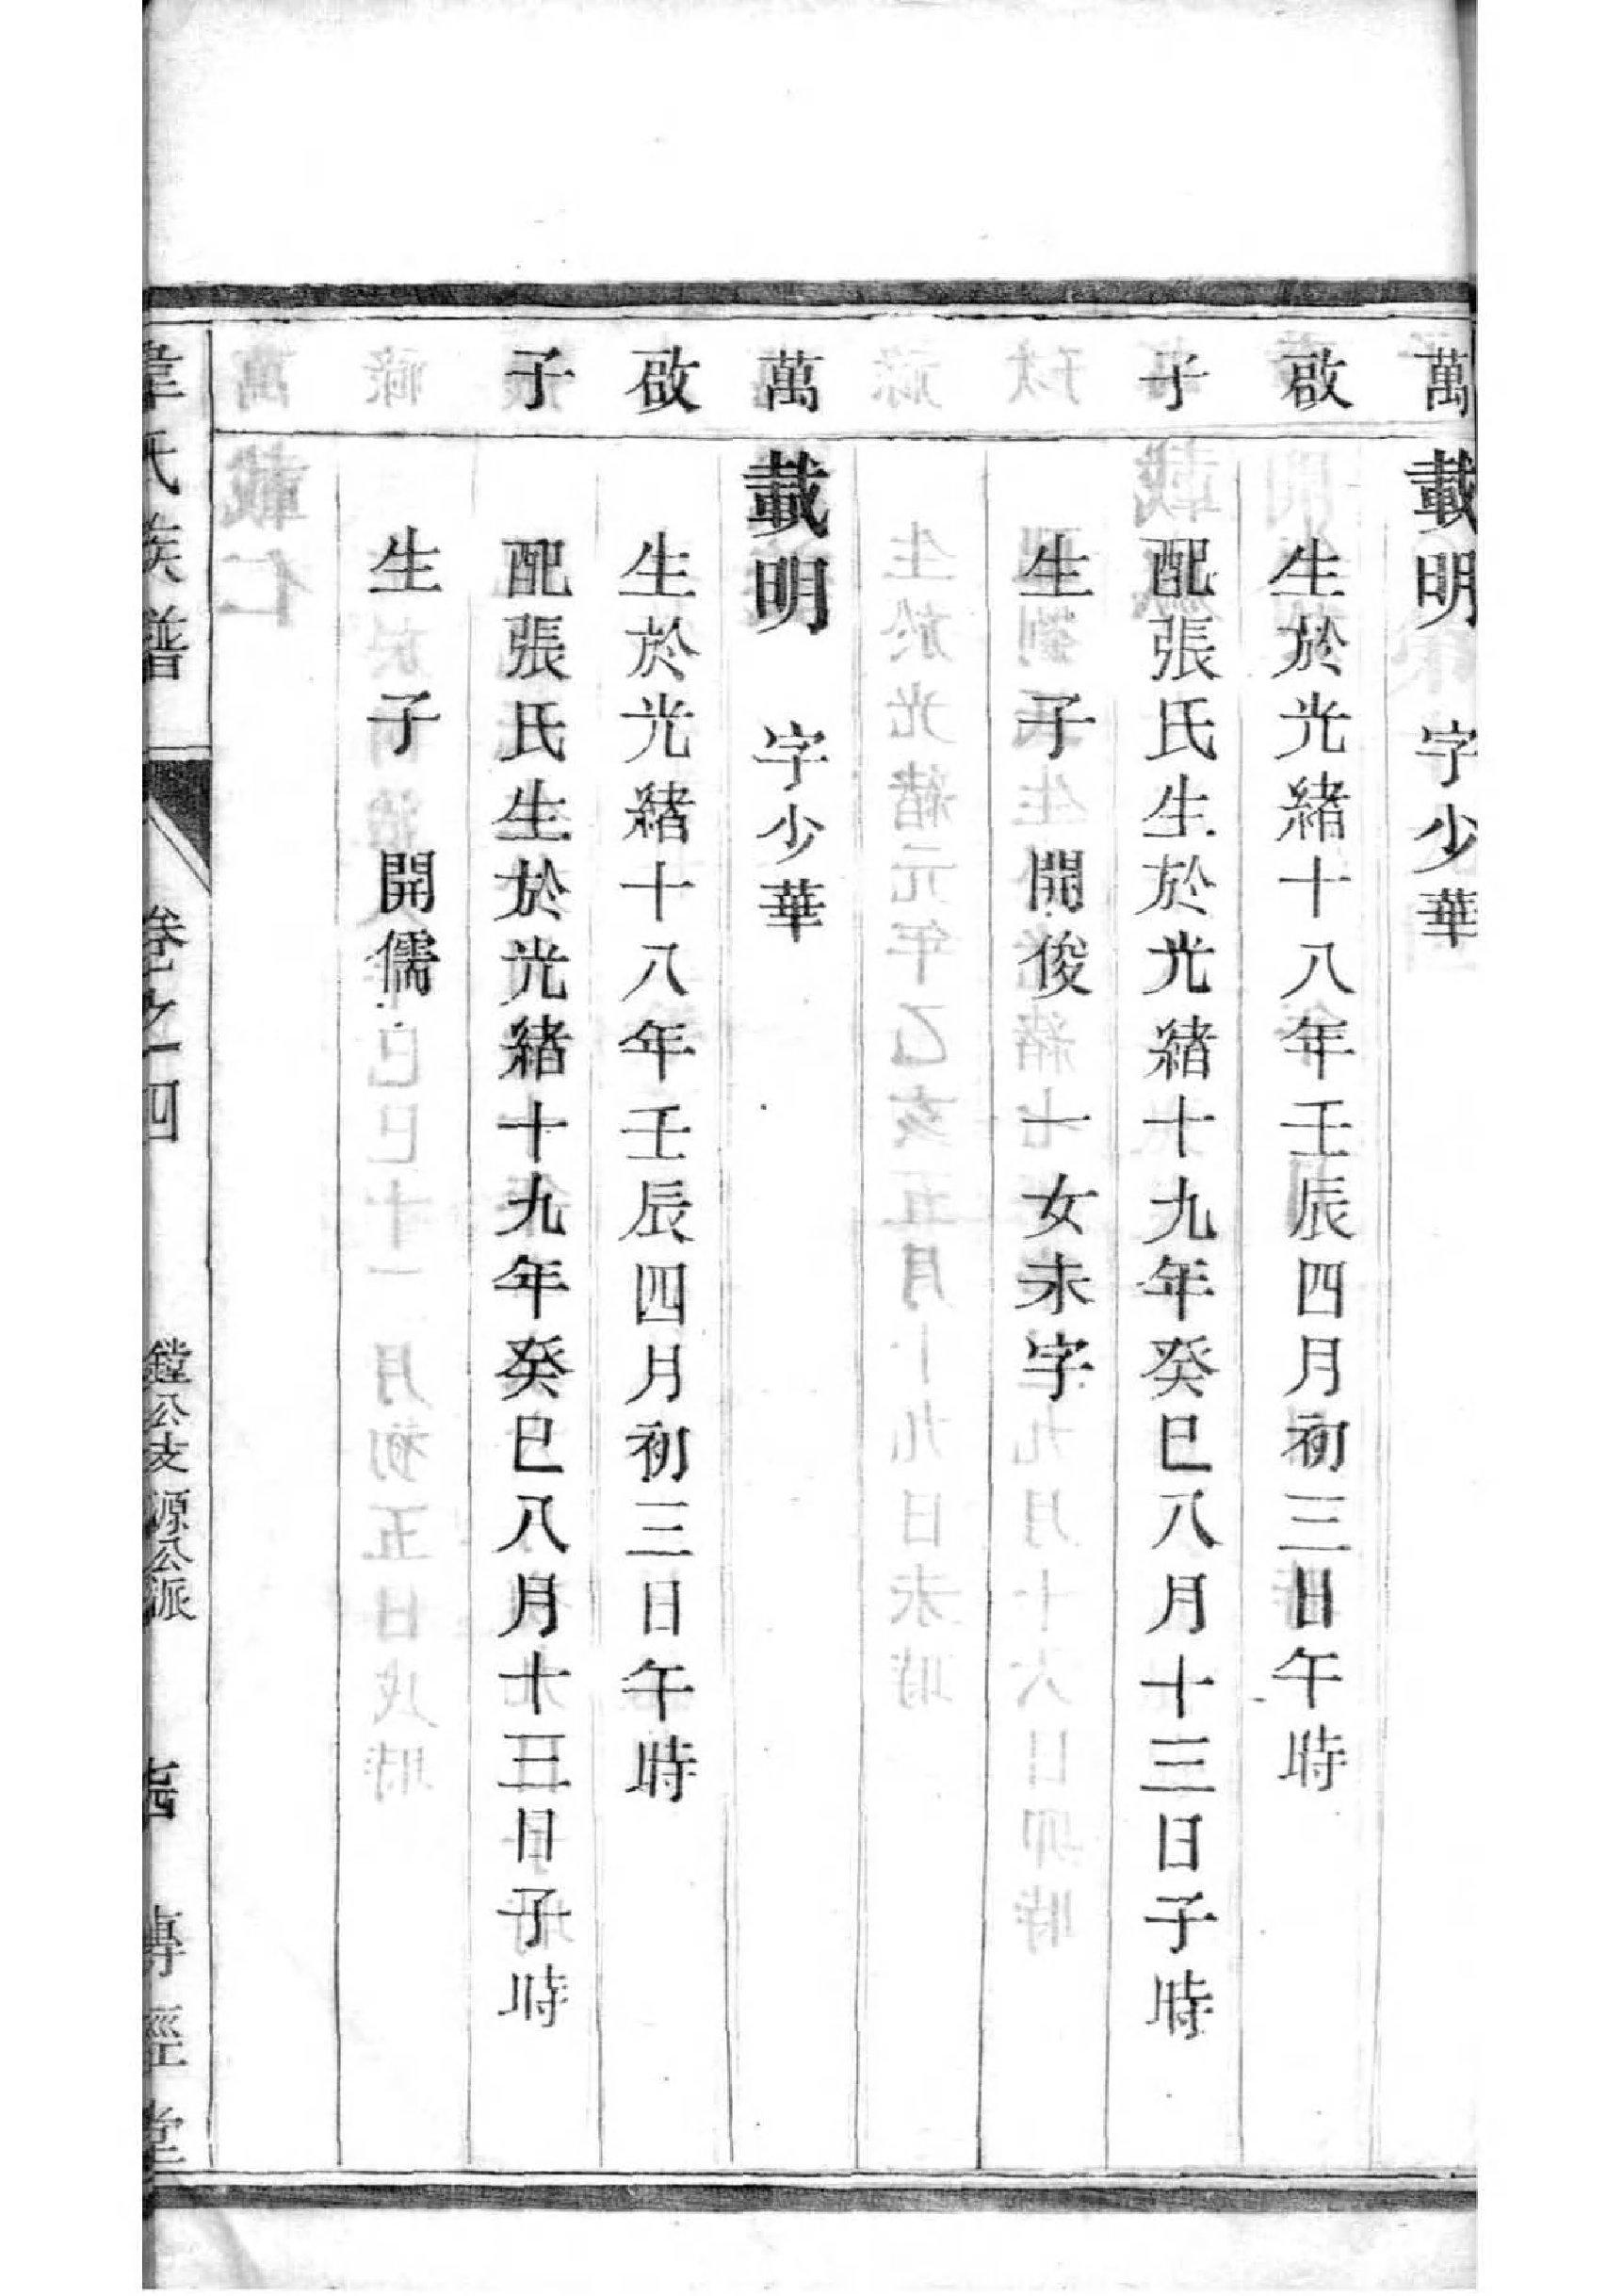 萬 載明 字少華
啟 生於光緒十八年壬辰四月初三日午時
子 配張氏生於光緒十九年癸巳八月十三日子時
生子 開俊 一女未字
萬 載明 字少華
啟 生於光緒十八年壬辰四月初三日午時
子 配張氏生於光緒十九年癸巳八月十三日子時
生子 開儒
韋氏族譜 卷之四 鏜公支源公派 傳經堂